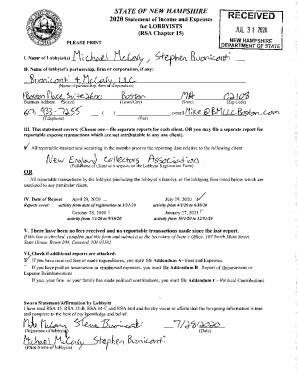 STATE OF NEW HAMPSHIRE
2020 Statement of Income and Expenses
for LOBBYISTS
(RSA Chapter 15)
RECEIVED
JUL 31 2020
NEW HAMPSHIRE
DEPARTMENT OF STATE
PLEASE PRINT
I. Name of Lobbyist(s) Michael McCary, Stephen Buonicanti
II. Name of lobbyist's partnership, firm or corporation, if any:
Buonicanti & McCary, LLC
(Name of partnership, firm or corporation)
1 Boston Place, Suite 2600 Boston MA 02108
Business Address (Street) (Town/City) (State) (Zip Code)
933-7255 Mike@BMLLCBoston.com
(Telephone) (Fax)
III. This statement covers: (Choose one – file separate reports for each client, OR you may file a separate report for
reportable expense transactions which are not attributable to any one client).
All reportable transactions occurring in the months prior to the reporting date relative to the following client:
New England Collectors Association
(Full Name of Client as it appears on the Lobbyist Registration Form)
OR
All reportable transactions by the lobbyist (including the lobbyist's family), or the lobbying firm listed below which are
unrelated to any particular client.
IV. Date of Report April 29, 2020 July 29, 2020
Reports cover: activity from date of registration to 3/31/20 activity from 4/1/20 to 6/30/20
October 28, 2020 January 27, 2021
activity from 7/1/20 to 9/30/20 activity from 10/1/20 to 12/31/20
V. There have been no fees received and no reportable transactions made since the last report.
If this box is checked, complete just this form and submit it to the Secretary of State's Office, 107 North Main Street,
State House, Room 204, Concord, NH 03301
VI. Check if additional reports are attached:
If you have received fees or made expenditures, you must file Addendum A – Fees and Expenses
If you have paid an honorarium or reimbursed expenses, you must file Addendum B – Report of Honorariums or
Expense Reimbursement
If you, your firm, or your family has made political contributions, you must file Addendum C – Political Contributions
Sworn Statement/Affirmation by Lobbyist
I have read RSA 15, RSA 15-B, RSA 14-C and RSA 664 and hereby swear or affirm that the foregoing information is true
and complete to the best of my knowledge and belief.
7/28/2020
(Signature of lobbyist) (Date)
Michael McCary Stephen Buonicanti
(Print Name of lobbyist)